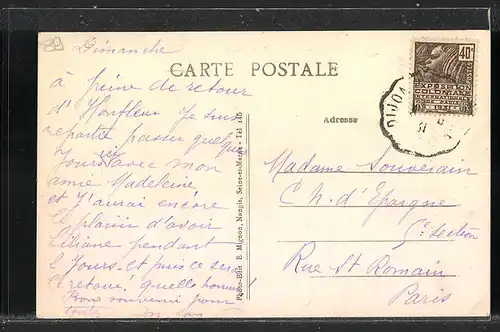 29
Dimanche
CARTE POSTALE
à peine de retour
d'Honfleur Je suis
repartie passer quelques
Jours ici avec mon
amie Madeleine
et J'aurai encore
le plaisir d'avoir
Liliane pendant
2 Jours et puis ce sera
le retour, quelle
Bons souvenir pour
toute
Photo-Edit. E. Mignon, Nangis, Seine-et-Marne - Tél 145
Adresse
Madame Souverain
C^h. d'Epargne
5e section
Rue St Romain
Paris
40c
EXPOSITION
COLONIALE
INTERNATIONALE
PARIS
1931
DIJON
31